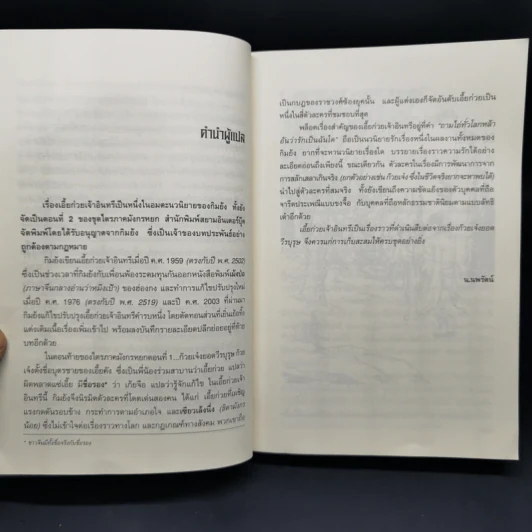 คำนำผู้แปล
เรื่องเอี้ยก่วยเจ้าอินทรีเป็นหนึ่งในอมตะนวนิยายของกิมย้ง ทั้งยัง
จัดเป็นตอนที่ 2 ของชุดไตรภาคมังกรหยก สำนักพิมพ์สยามอินเตอร์บุ๊ค
จัดพิมพ์โดยได้รับอนุญาตจากกิมย้ง ซึ่งเป็นเจ้าของบทประพันธ์อย่าง
ถูกต้องตามกฎหมาย
กิมย้งเขียนเอี้ยก่วยเจ้าอินทรีเมื่อปี ค.ศ. 1959 (ตรงกับปี พ.ศ. 2502)
ซึ่งเป็นช่วงเวลาที่กิมย้งกับเพื่อนพ้องระดมทุนกันออกหนังสือพิมพ์เม้งป่อ
(ภาษาจีนกลางอ่านว่าหมิงเป้า) ของฮ่องกง และทำการแก้ไขปรับปรุงใหม่
เมื่อปี ค.ศ. 1976 (ตรงกับปี พ.ศ. 2519) และปี ค.ศ. 2003 ที่ผ่านมา
กิมย้งแก้ไขปรับปรุงเอี้ยก่วยเจ้าอินทรีคำรบหนึ่ง โดยตัดทอนส่วนที่เยิ่นเย้อทิ้ง
แต่งเติมเนื้อเรื่องเพิ่มเข้าไป พร้อมลงบันทึกรายละเอียดปลีกย่อยอยู่ที่ท้าย
บทอีกด้วย
ในตอนท้ายของไตรภาคมังกรหยกตอนที่ 1...ก๊วยเจ๋งยอดวีรบุรุษ ก๊วย
เจ๋งตั้งชื่อบุตรชายของเอี้ยคัง ซึ่งเป็นพี่น้องร่วมสาบานว่าเอี้ยก่วย แปลว่า
ผิดพลาดแซ่เอี้ย มีชื่อรอง* ว่า เกียจือ แปลว่ารู้จักแก้ไข ในเอี้ยก่วยเจ้า
อินทรีนี้ กิมย้งจึงนิรมิตตัวละครที่โดดเด่นสองคน ได้แก่ เอี้ยก่วยที่เผชิญ
แรงกดดันรอบข้าง กระทำการตามอำเภอใจ และเซียวเล้งนึ่ง (ธิดามังกร
น้อย) ซึ่งไม่เข้าใจต่อเรื่องราวทางโลก และกฎเกณฑ์ทางสังคม พวกเขาถือ
* ชาวจีนมีทั้งชื่อจริงกับชื่อรอง
เป็นกบฏของราชวงศ์ซ้องยุคนั้น และผู้แต่งเองก็จัดอันดับเอี้ยก่วยเป็น
หนึ่งในสี่ตัวละครที่ชมชอบที่สุด
พล็อตเรื่องสำคัญของเอี้ยก่วยเจ้าอินทรีอยู่ที่คำ "ถามไถ่ทั่วโลกหล้า
อันว่ารักเป็นฉันใด" ถือเป็นนวนิยายรักเรื่องหนึ่งในผลงานทั้งหมดของ
กิมย้ง ยากที่จะหานวนิยายเรื่องใด บรรยายเรื่องราวความรักได้อย่าง
ละเอียดอ่อนถึงเพียงนี้ ขณะเดียวกัน ตัวละครในเรื่องมีการพัฒนาการจาก
การสลักเสลาเกินจริง (ยกตัวอย่างเช่น ก๊วยเจ๋ง ซึ่งในชีวิตจริงยากจะหาพบได้)
นำไปสู่ตัวละครที่สมจริง ทั้งยังเขียนถึงความขัดแย้งของตัวบุคคลที่ถือ
จารีตประเพณีแบบขงจื้อ กับบุคคลที่ยึดหลักธรรมชาตินิยมตามแบบลัทธิ
เต๋าอีกด้วย
เอี้ยก่วยเจ้าอินทรีเป็นเรื่องราวที่ดำเนินสืบต่อจากเรื่องก๊วยเจ๋งยอด
วีรบุรุษ จึงควรแก่การเก็บสะสมให้ครบชุดอย่างยิ่ง
น.นพรัตน์